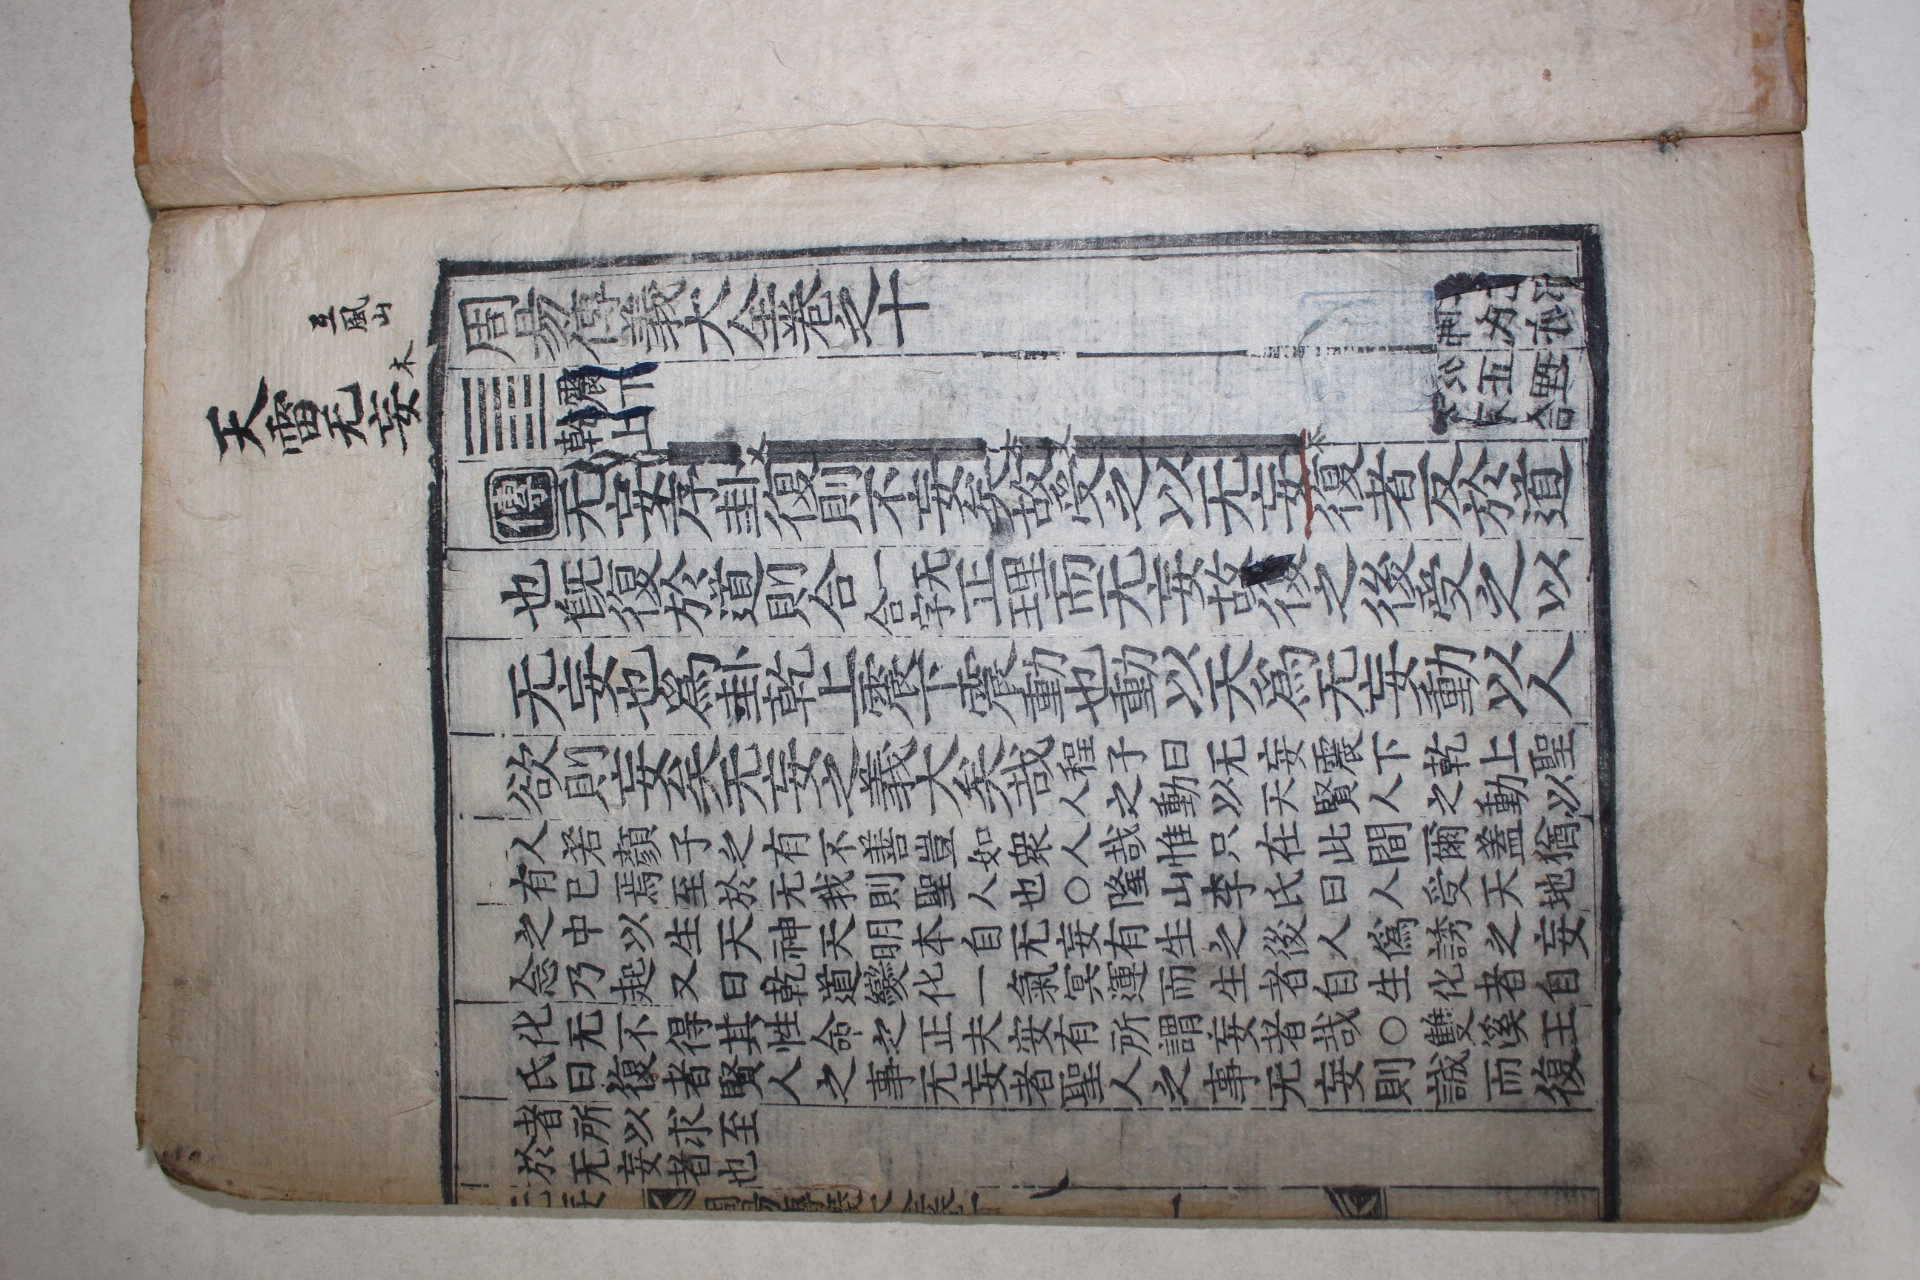 互風山
天雷无妄
木
周易傳義大全卷之十
震下
乾上
傳无妄序卦復則不妄矣故受之以无妄復者反於道
也旣復於道則合一无合字正理而无妄故復之後受之以
无妄也爲卦乾上震下震動也動以天爲无妄動以人
欲則妄矣无妄之義大矣哉程子曰无妄震下乾上聖
人之動以天賢人之動以
人若顔子之有不善豈如衆人哉惟只在此間爾蓋猶
有已焉至於无我則聖人也○隆山李氏曰人受天地
之中以生天神天明本自无妄有生之後人爲誘之妄
念乃起又曰乾道變化一氣冥運而生者自生化者自
化无不得其性命之正夫安有所謂妄者哉○雙溪王
氏曰復者賢人之事无妄者聖人之事无妄則誠而復
者所以求至
於无妄者也